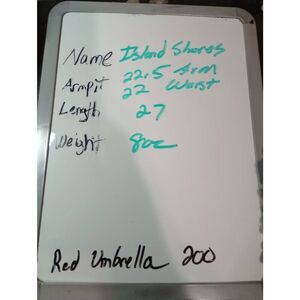 Name Island Shores
Armpit 22.5 Arm
22 Waist
Length 27
Weight 8oz
Red Umbrella 200